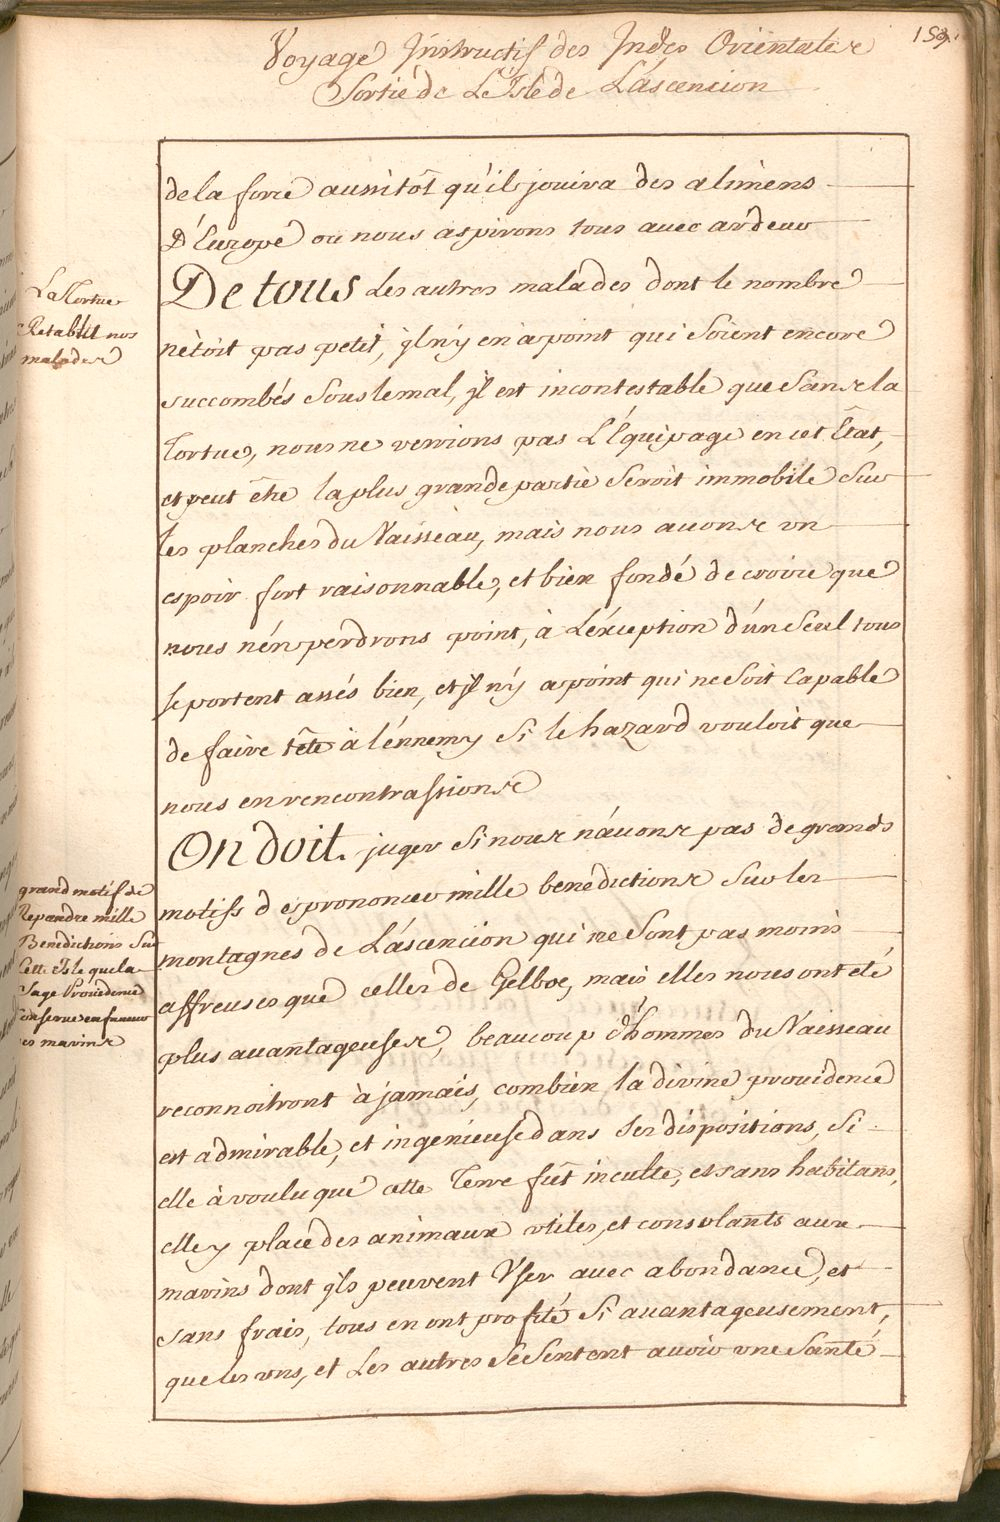 Voyage Instructif des Indes Orientales
159.
Sortie de L'Isle de L'ascension
de la force aussitôt qu'il jouira des alimens
D'Europe ou nous aspirons tous avec ardeur
La Tortue
Retablit nos
malades
De tous Les autres malades dont le nombre
nétoit pas petit, jl n'y en a point qui soient encore
succombés sous le mal, jl est incontestable que sans la
Tortue, nous ne verrions pas L'Equipage en cet Etat,
et peut être la plus grande partie seroit immobile sur
les planches du Vaisseau, mais nous avons un
espoir fort raisonnable, et bien fondé de croire que
nous n'en perdrons point, à L'éxception d'ún seul tous
se portent assés bien, et jl n'y a point qui ne soit Capable
de faire tête à l'énnemy si le hazard vouloit que
nous en rencontrassions
On doit juger si nous n'ávons pas de grands
motifs de prononcer mille benedictions sur les
montagnes de L'ascension qui ne sont pas moins
affreuses que celles de Gelboe, mais elles nous ont été
plus avantageuses, beaucoup d'hommes du Vaisseau
reconnoitront à jamais, combien la divine providence
est admirable, et ingenieuse dans ses dispositions, si
elle à voulu que cette Terre fût inculte, et sans habitans,
elle y place des animaux utiles, et consolants aux
marins dont jls peuvent User avec abondance, et
sans frais, tous en ont profité si avantageusement,
que les uns, et Les autres se sentent avoir une Santé
grand motif de
Repandre mille
Benedictions Sur
Cette Isle que la
Sage Providence
Conserve en faveur
des marins